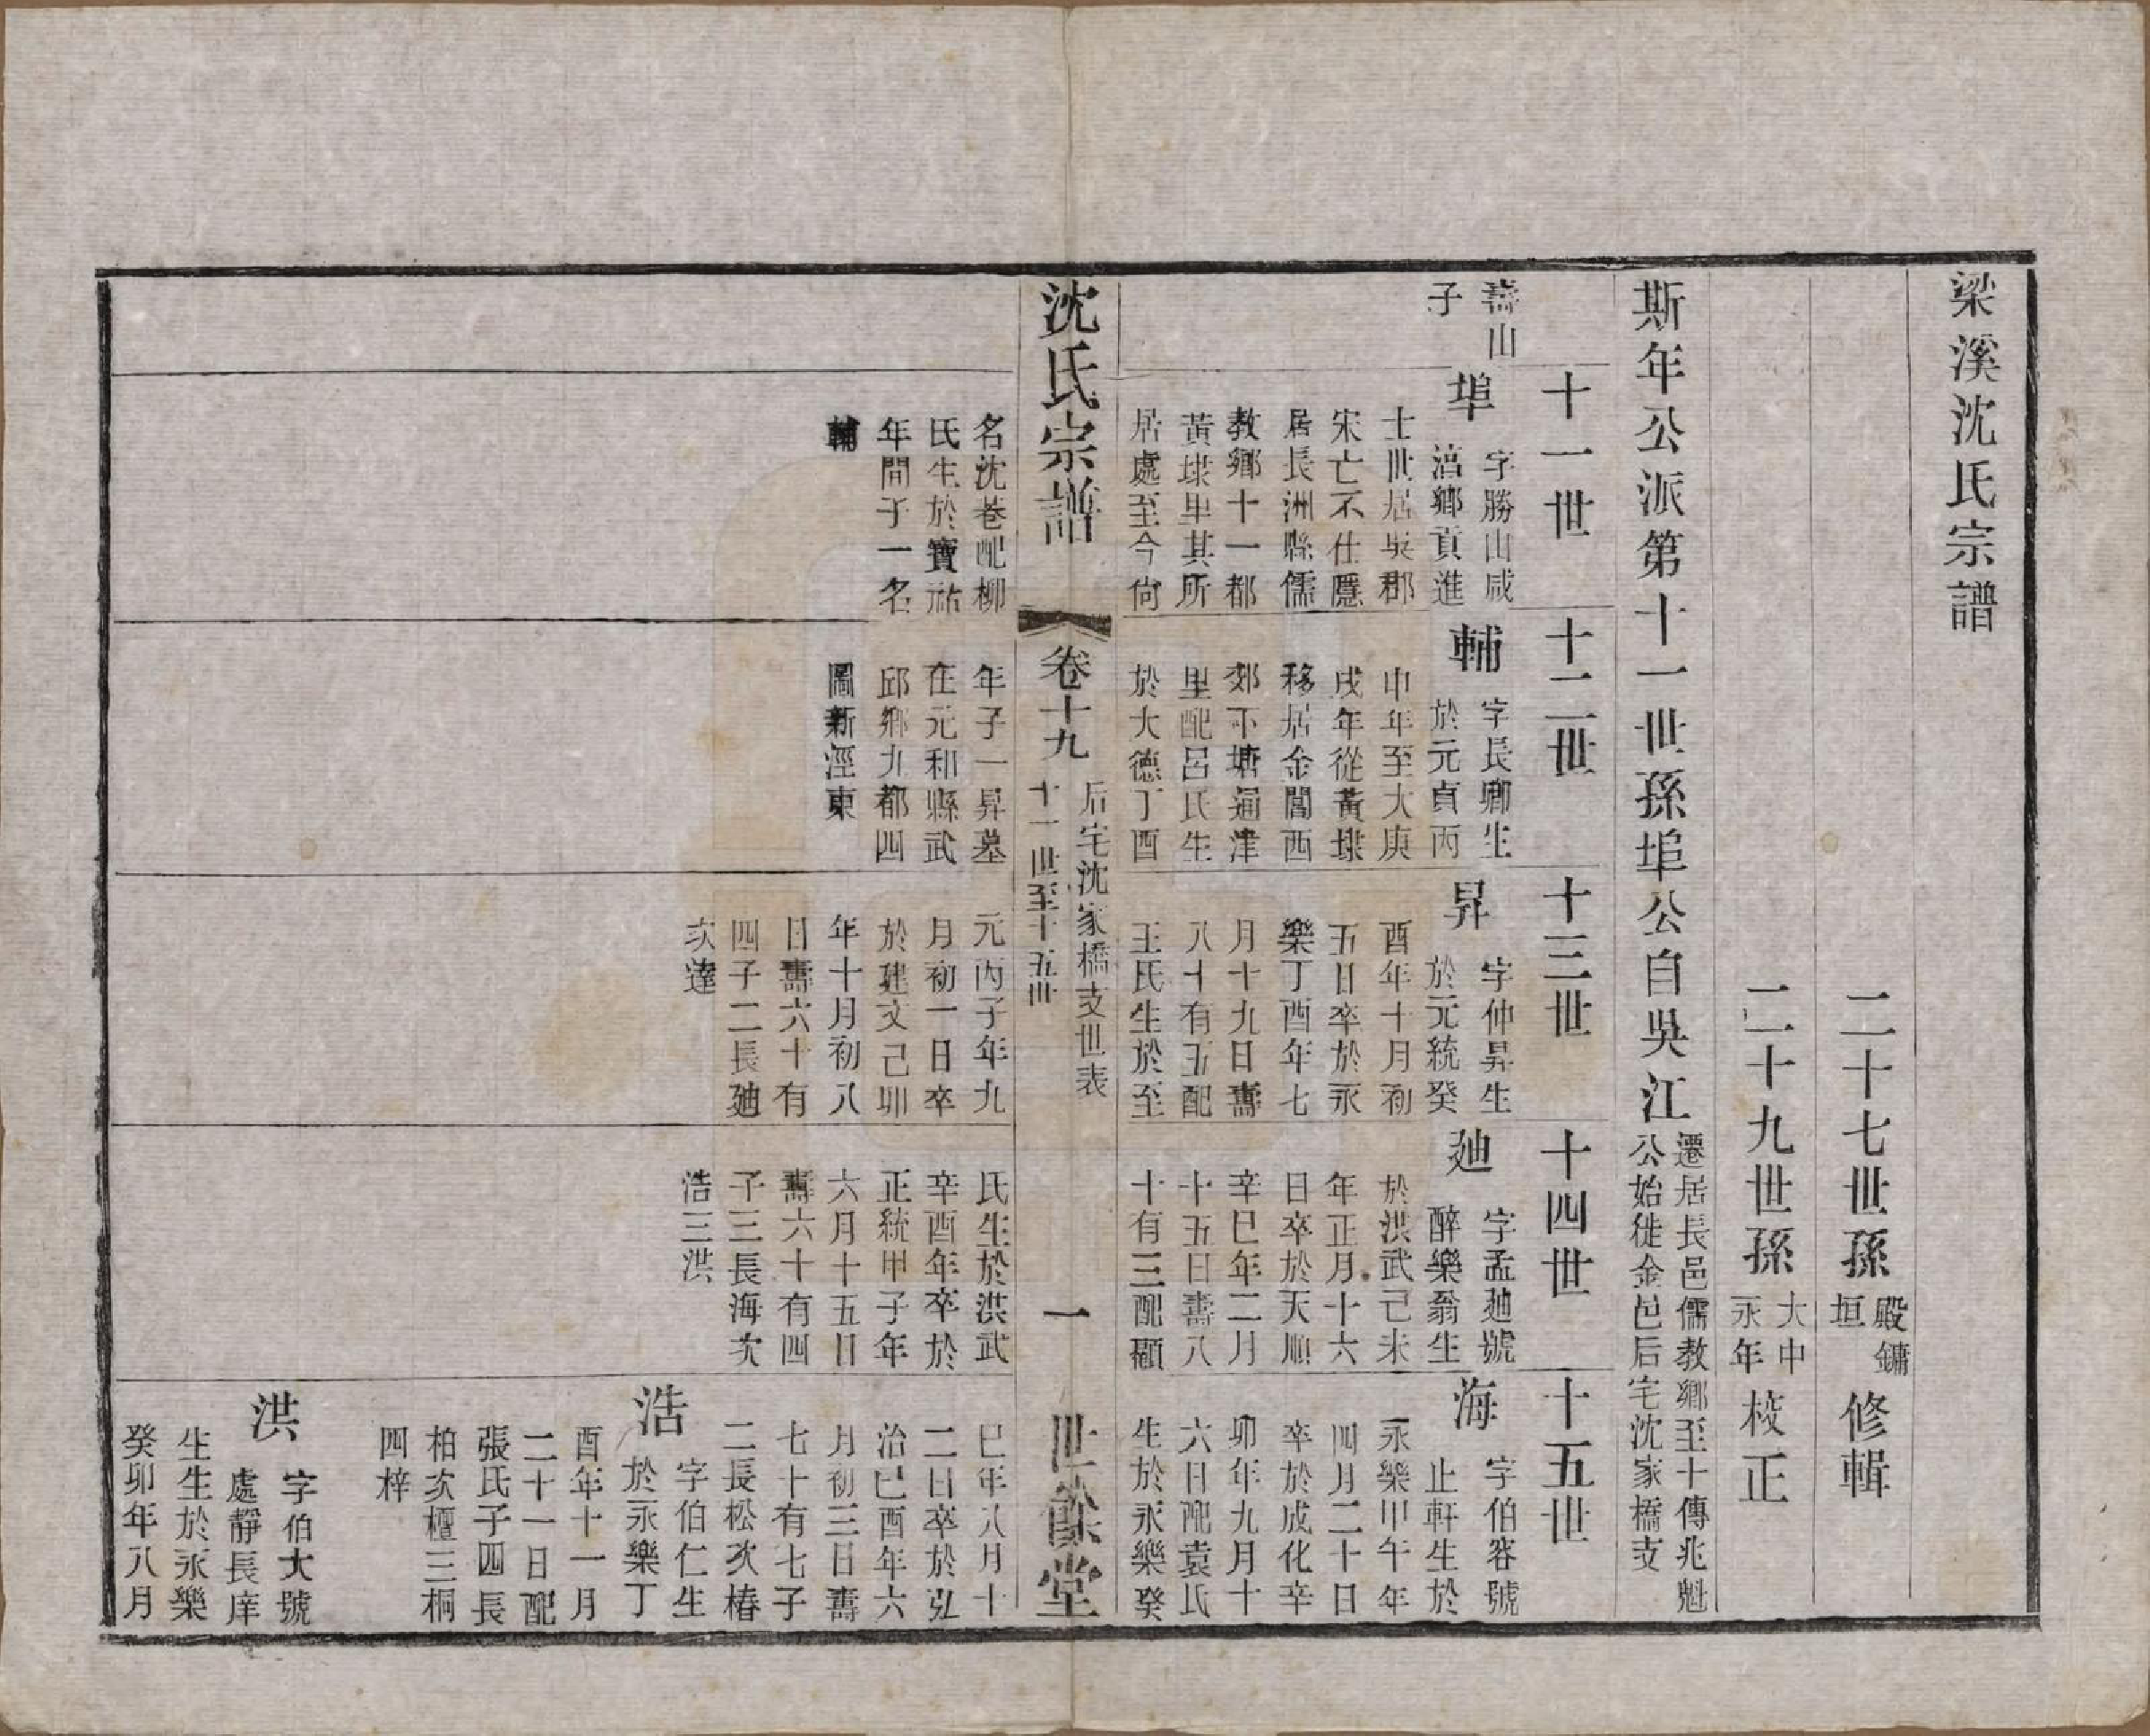 梁溪沈氏宗譜
二十七世孫殿鏞垣修輯
二十九世孫大中永年校正
斯年公派第十一世孫埠公自吳江遷居長邑儒教鄉至十傳兆魁
公始徙金邑后宅沈家橋支
十一世
十二世
十三世
十四世
十五世
壽山
子
埠
字勝山咸
淳鄉貢進
士世居吳郡
宋亡不仕隱
居長洲縣儒
教鄉十一都
黃埭里其所
居處至今尙
名沈巷配柳
氏生於寶祐
年間子一名
輔
輔
字長卿生
於元貞丙
申年至大庚
戌年從黃埭
移居金閶西
郊下塘通津
里配呂氏生
於大德丁酉
年子一昇墓
在元和縣武
邱鄉九都四
圖新涇東
昇
字仲昇生
於元統癸
酉年十月初
五日卒於永
樂丁酉年七
月十九日壽
八十有五配
王氏生於至
元丙子年九
月初一日卒
於建文己卯
年十月初八
日壽六十有
四子二長廸
次達
廸
字孟廸號
醉樂翁生
於洪武己未
年正月十六
日卒於天順
辛巳年二月
十五日壽八
十有三配顧
氏生於洪武
辛酉年卒於
正統甲子年
六月十五日
壽六十有四
子三長海次
浩三洪
海
字伯容號
止軒生於
永樂甲午年
四月二十日
卒於成化辛
卯年九月十
六日配袁氏
生於永樂癸
巳年八月十
二日卒於弘
治己酉年六
月初三日壽
七十有七子
二長松次椿
浩
字伯仁生
於永樂丁
酉年十一月
二十一日配
張氏子四長
柏次櫃三桐
四梓
洪
字伯大號
處靜長庠
生生於永樂
癸卯年八月
沈氏宗譜
卷十九
后宅沈家橋支世表
十一世至十五世
一
世馀堂